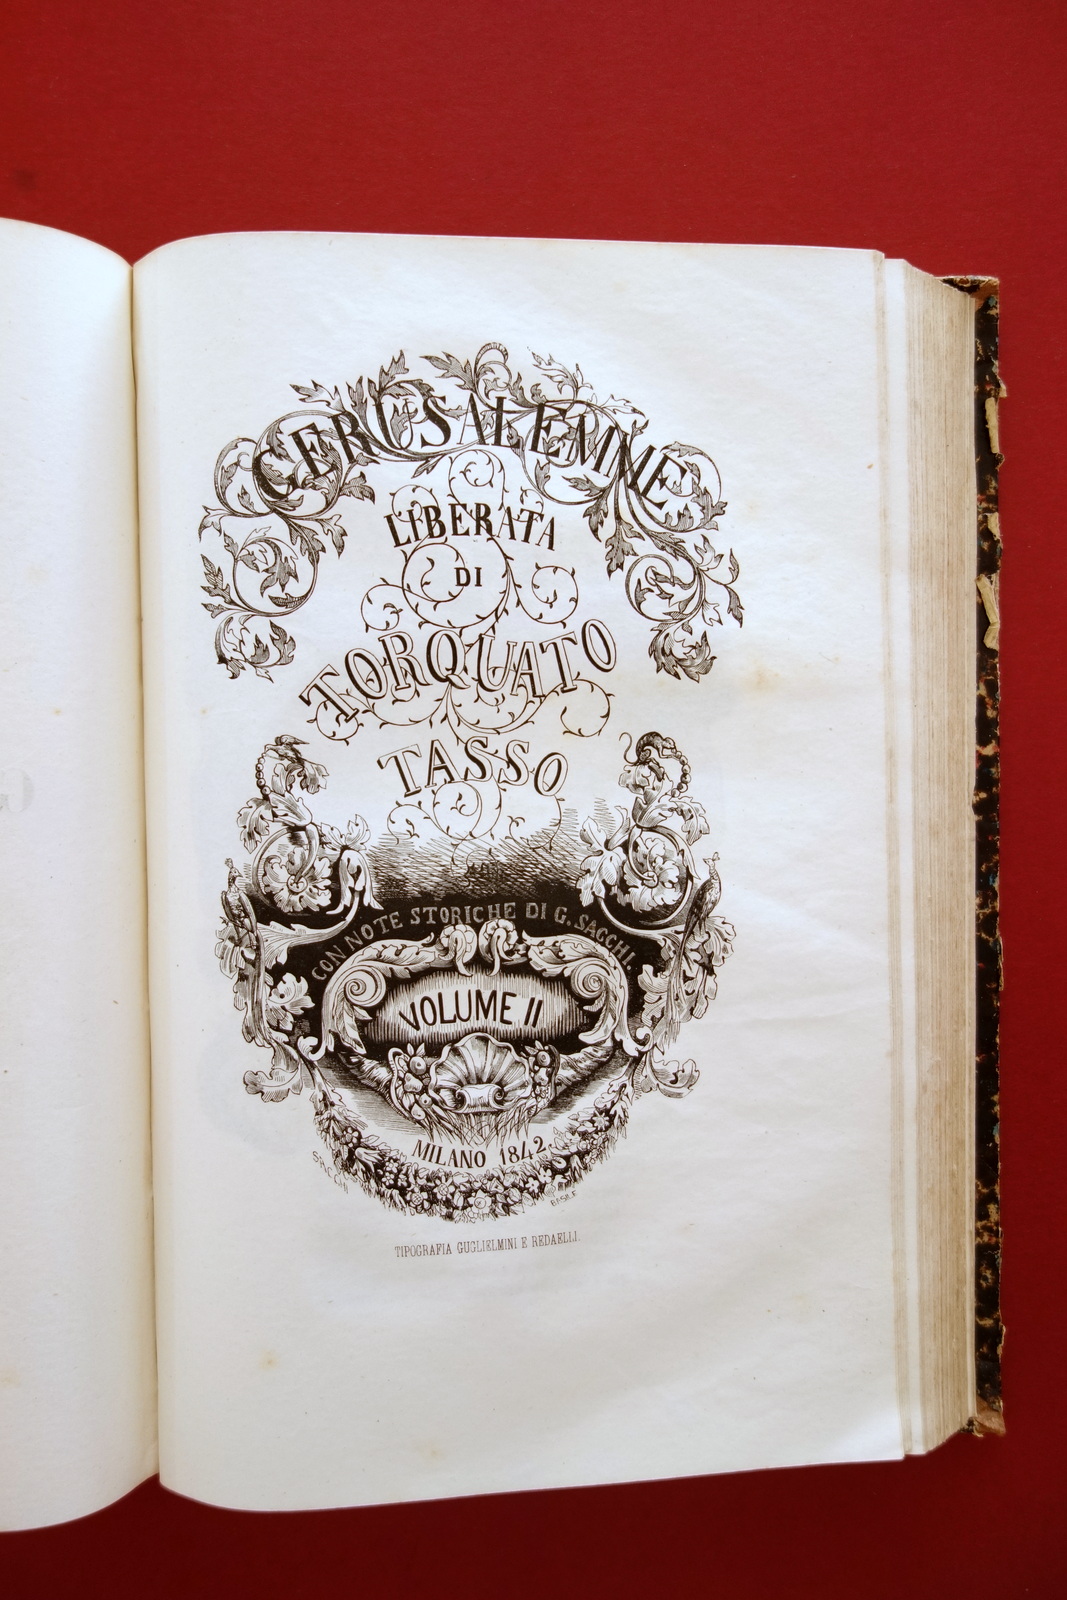 GERUSALEMME
LIBERATA
DI
TORQUATO
TASSO
CON NOTE STORICHE DI G. SACCHI.
VOLUME II
MILANO 1842
SACCHI
BASILE
TIPOGRAFIA GUGLIELMINI E REDAELLI.